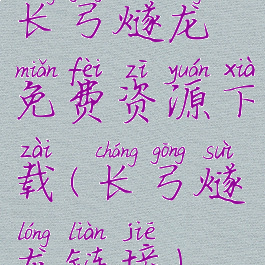 长弓燧龙
miǎn fèi zī yuán xià
免费资源下
zài ( cháng gōng suì
载(长弓燧
lóng liàn jiē
龙链接)